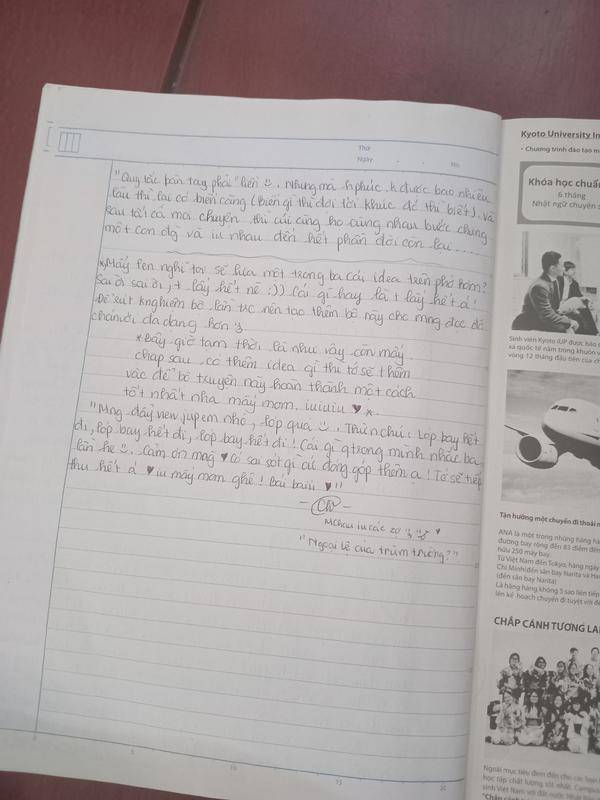 Thứ
Ngày
No.
"Quy tắc bàn tay phải" liền ☺. Nhưng mà h phúc k được bao nhiêu
lâu thì lại có biến căng (biến gì thì đợi tới khúc đó thì biết). Và
sau tất cả mọi chuyện thì cúi cùng họ cùng nhau bước chung
một con đg và iu nhau đến hết phần đời còn lại.....
*Mấy fen nghĩ toy sẽ lựa một trong ba cái idea trên phở hơm?
Sai ời sai ời, t lấy hết nè :)) Cái gì hay là t lấy hết á!
Để rút knghiệm bé lần tr'c nên tạo thêm bé này cho mng đọc đỡ
chánười đa dạng hơn
*Bây giờ tạm thời là như vậy còn mấy
chap sau có thêm idea gì thì tớ sẽ thêm
vác để bộ truyện này hoàn thành một cách
tốt nhất nha mấy mom. iuiuiu ♥*
"Mng đẩy view júp em nhó, lớp qua ☺. Thừn chú: Lớp bay hết
đi, lớp bay hết đi, lớp bay hết đi! Cái gì qtrọng mình nhắc ba
lần he ☺. Cảm ơn mng ♥ Có sai sót gì cứ đóng góp thêm ạ! Tớ sẽ tiếp
thu hết á ♥ iu mấy mom ghê! Bái baiii ♥!"
MChau iu các
"Ngoại lệ của trùm trường?"
Kyoto University In
• Chương trình đào tạo m
Khóa học chuẩn
6 tháng
Nhật ngữ chuyên s
Sinh viên Kyoto IUP được bảo
xá quốc tế nằm trong khuôn v
vòng 12 tháng đầu tiên của ch
Tận hưởng một chuyến đi thoải m
ANA là một trong những hãng hà
đường bay rộng đến 83 điểm đến
hữu 250 máy bay.
Từ Việt Nam đến Tokyo, hàng ngày
Chí Minh đến sân bay Narita và Ha
(đến sân bay Narita)
Là hãng hàng không 5 sao liên tiếp
lên kế hoạch chuyến đi tuyệt vời để
CHẮP CÁNH TƯƠNG LAI
Ngoài mục tiêu đem đến cho các bạn
học tập chất lượng tốt nhất, Campus
sinh Việt Nam với đất nước Nhật Bản
"Chắp cánh